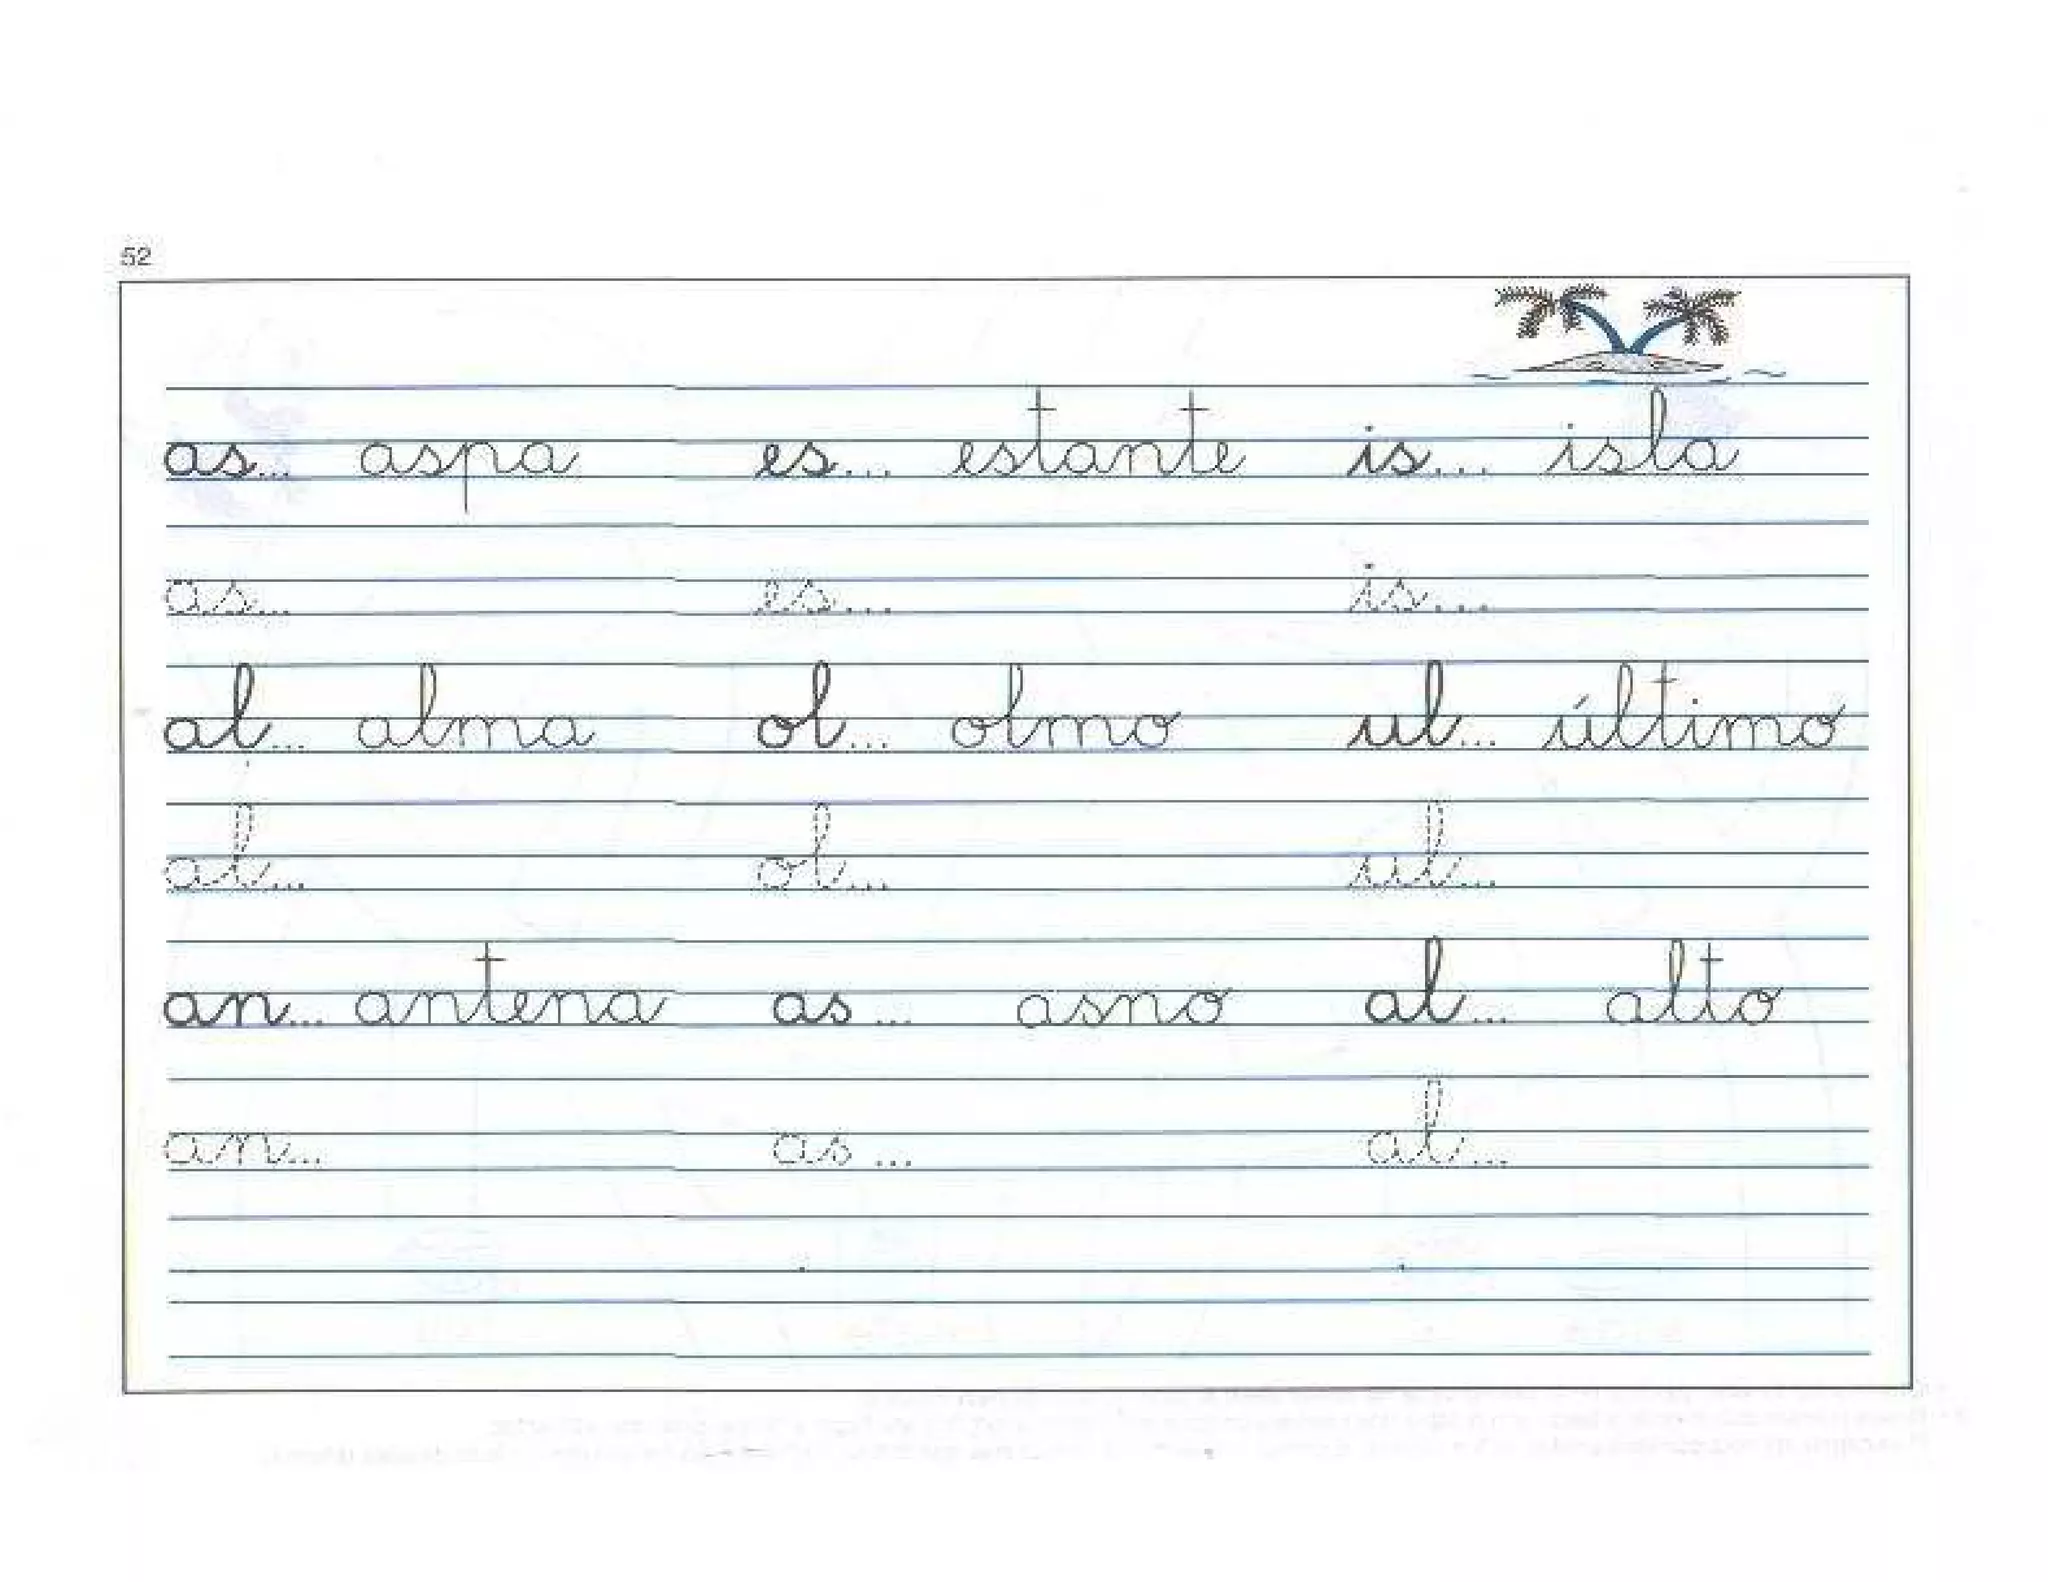 52
as... aspa es... estante is... isla
as... es... is...
al... alma ol... olmo ul... último
al... ol... ul...
an... antena as... asno al... alto
an... as... al...